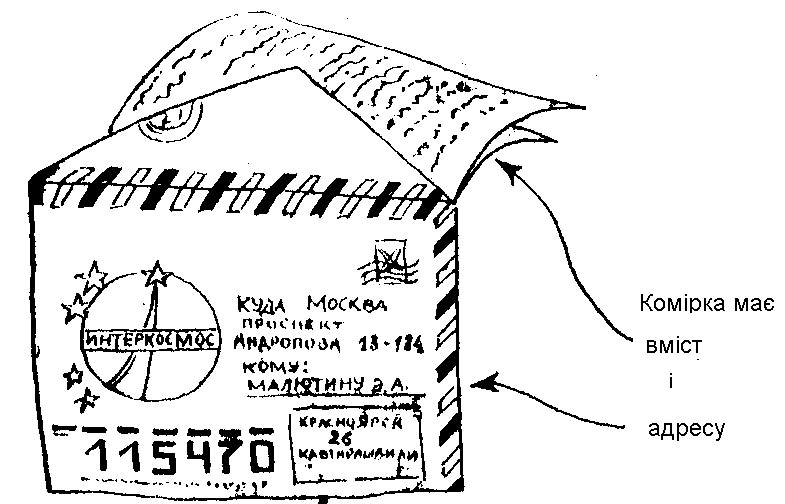 ИНТЕРКОСМОС
КУДА МОСКВА
ПРОСПЕКТ
АНДРОПОВА 18-184
КОМУ:
МАЛЮТИНУ Э.А.
115470
КРАСНОЯРСК
26
Комірка має
вміст
і
адресу